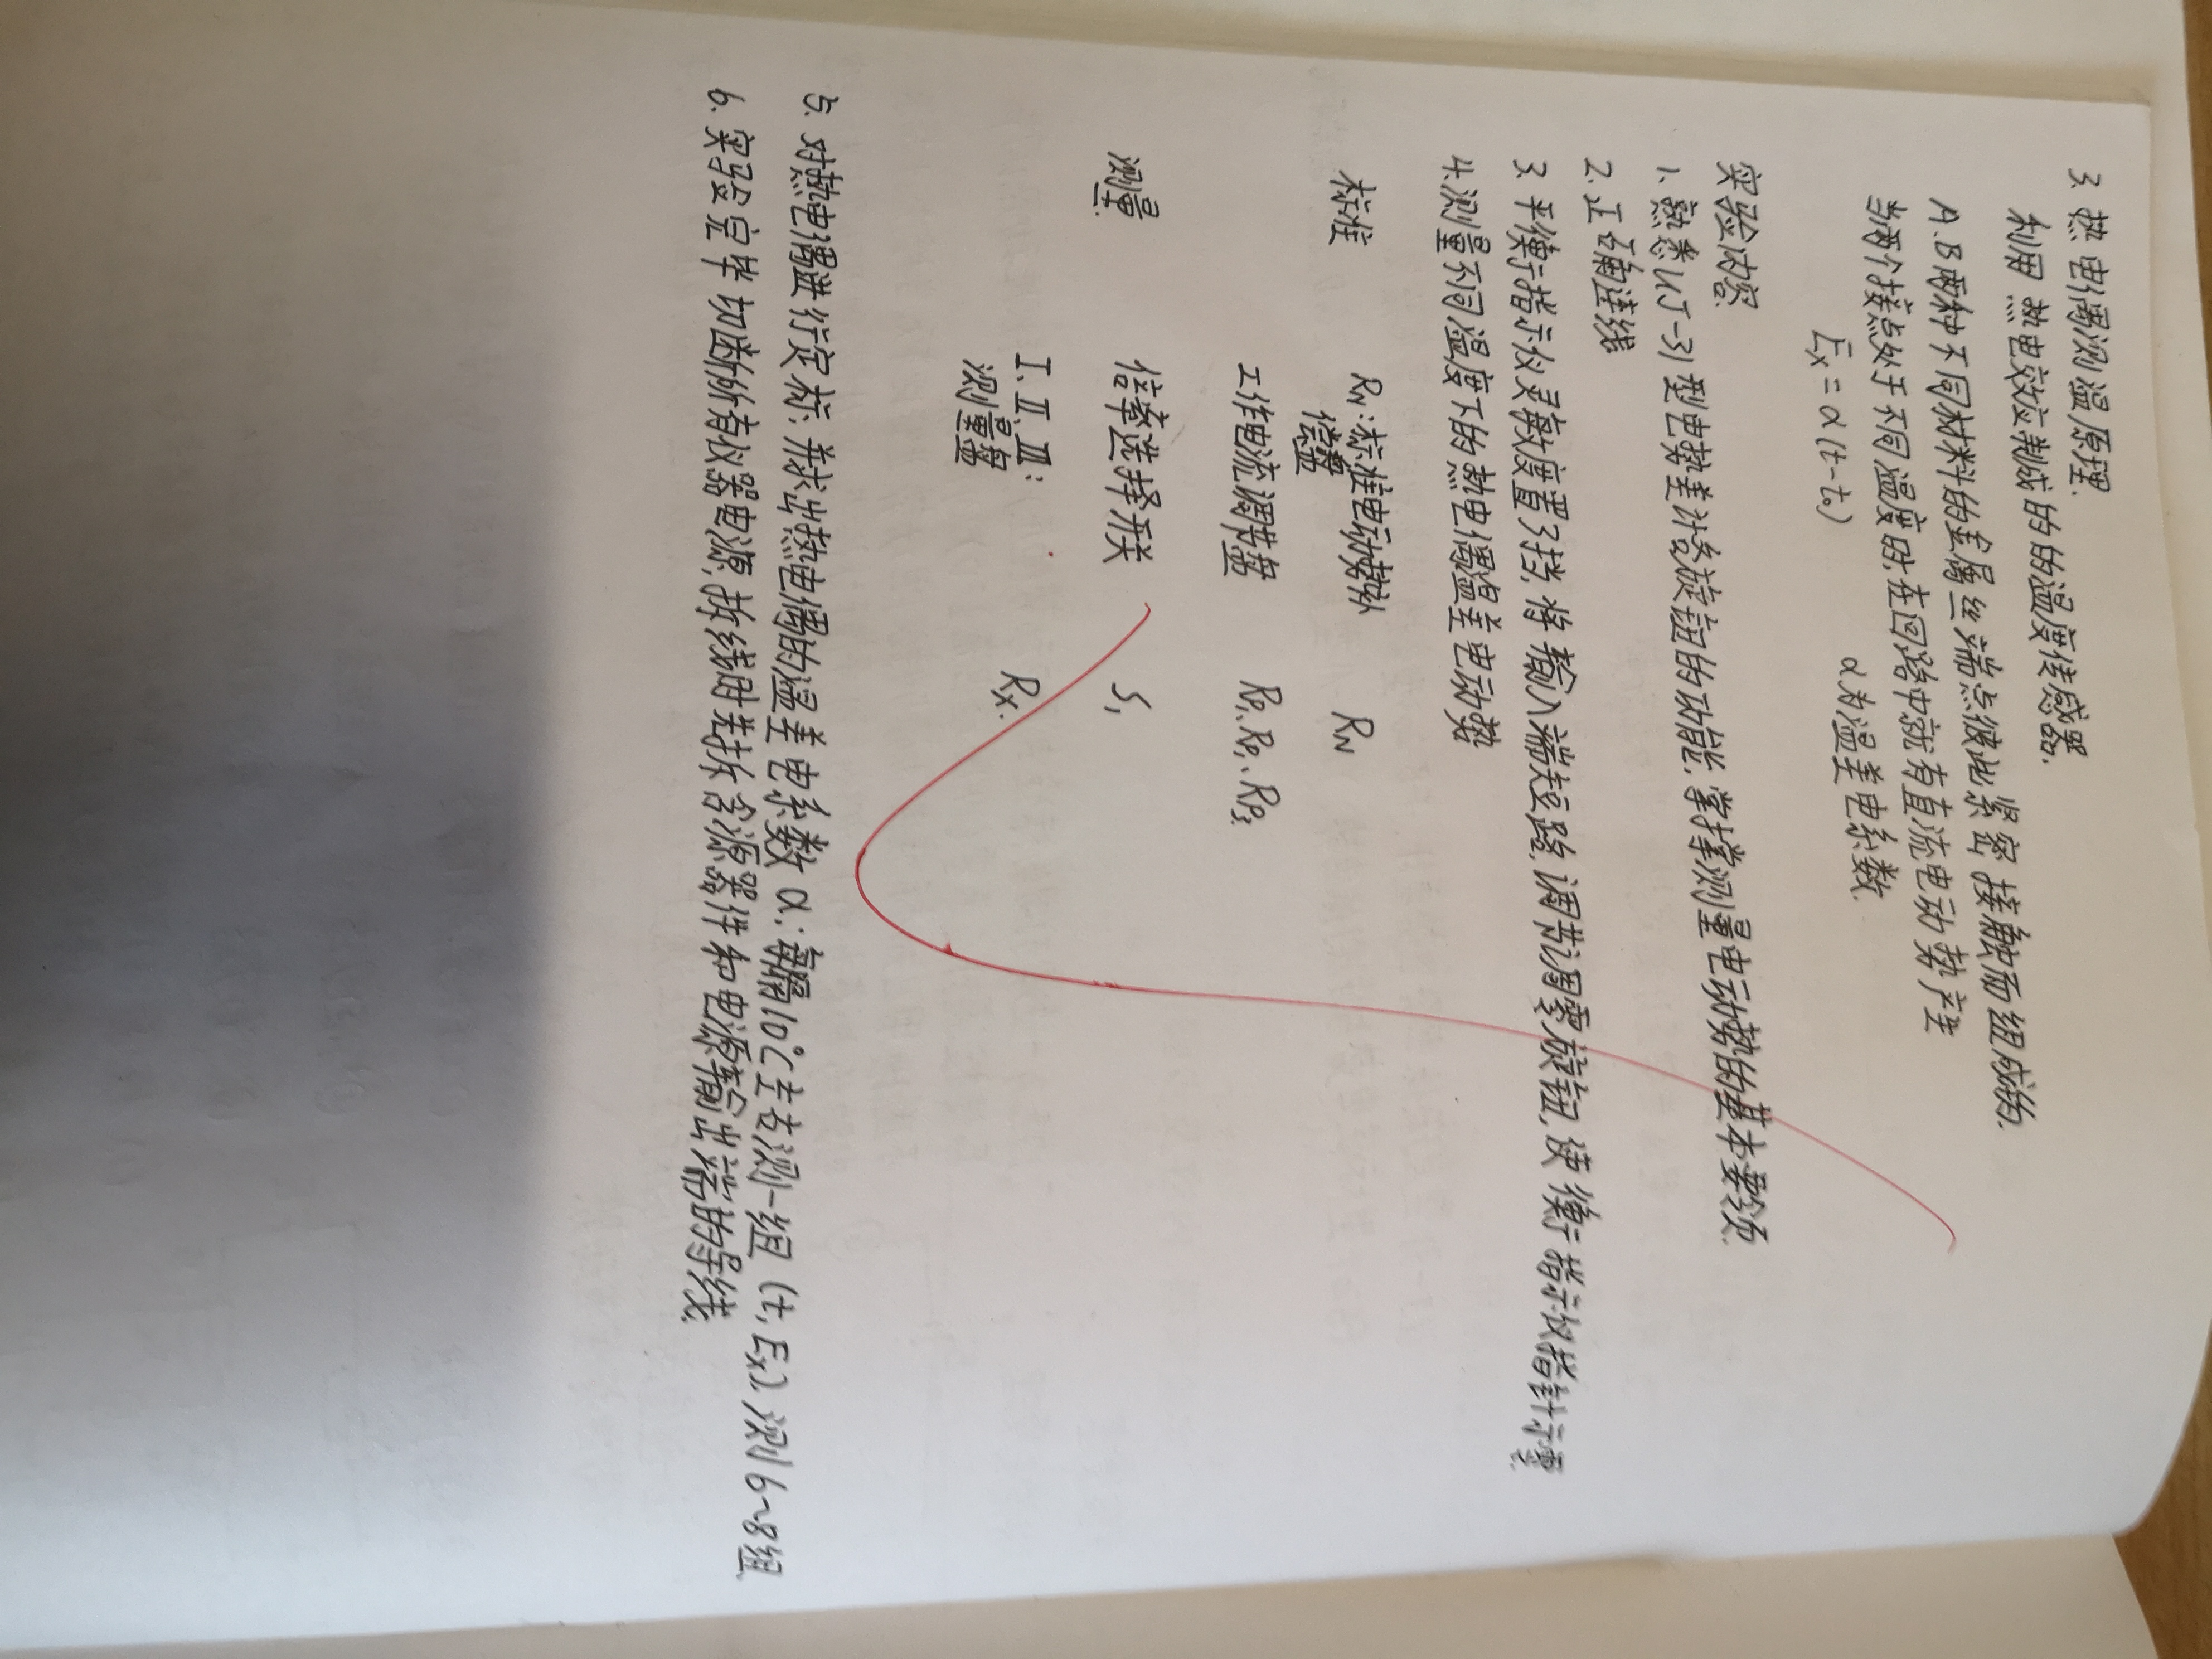 3. 热电偶测温原理.
利用热电效应制成的的温度传感器.
A.B两种不同材料的金属丝端点彼此紧密接触而组成的.
当两个接点处于不同温度时,在回路中就有直流电动势产生
Ex = α (t-t₀) α为温差电系数.
实验内容
1. 熟悉UJ-31型电势差计各旋钮的功能,掌握测量电动势的基本要领.
2. 正确连线
3. 平衡指示仪灵敏度置3挡,将输入端短路,调节调零旋钮,使衡指示仪指针示零.
4. 测量不同温度下的热电偶温差电动势
标准 RN:标准电动势补 RN
偿盘
工作电流调节盘 RP₁、RP₂、RP₃
测量 倍率选择开关 S₁
I、II、III: Rx.
测量盘
5. 对热电偶进行定标,并求出热电偶的温差电系数α:每隔10℃左右测一组 (t, Ex),测6~8组.
6. 实验完毕切断所有仪器电源,拆线时先拆含源器件和电源输出端的导线.